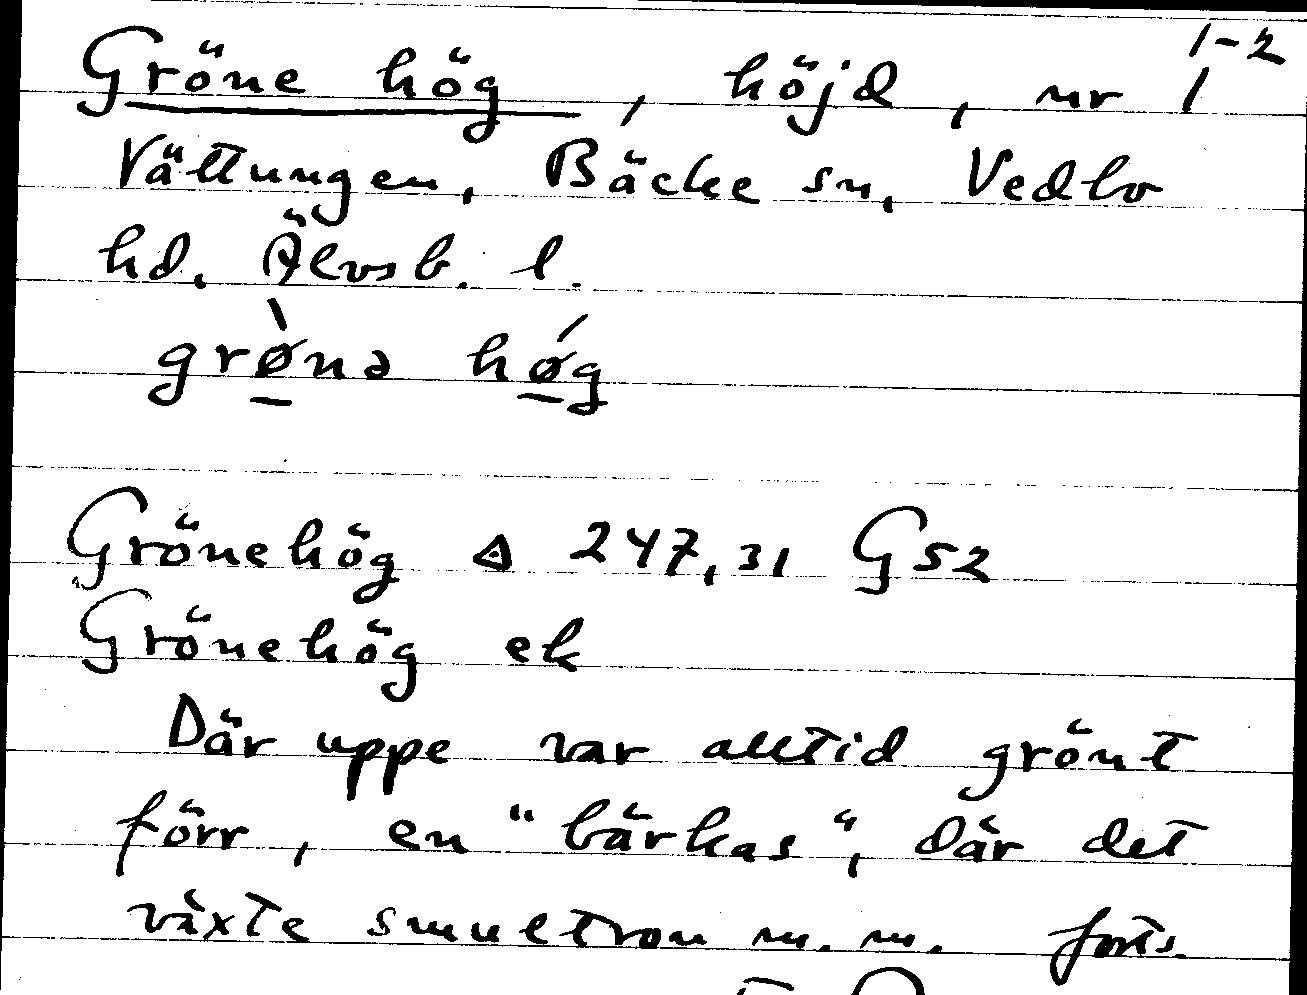 1-2
Gröne hög, höjd, nr 1
Vättungen, Bäcke sn, Vedbo
hd, Älvsb. l.
grø̀nə hǿg
Grönehög 247,31 G52
Grönehög ek
Där uppe var alltid grönt
förr, en "bärkas", där det
växte smultron m.m. forts.